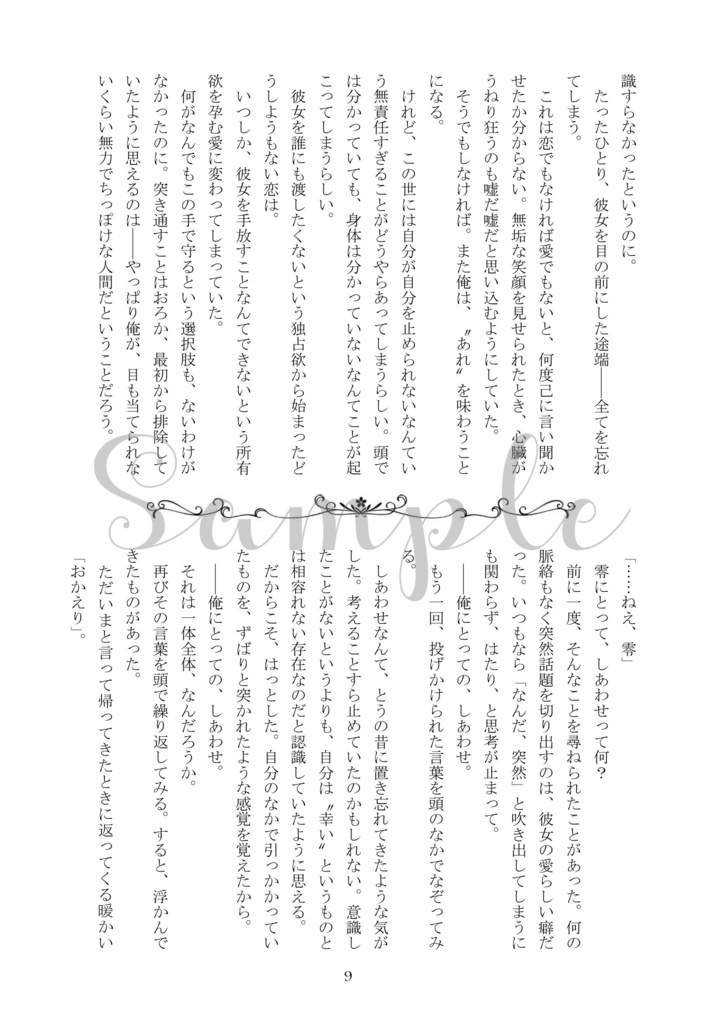 識すらなかったというのに。
たったひとり、彼女を目の前にした途端――全てを忘れ
てしまう。
これは恋でもなければ愛でもないと、何度己に言い聞か
せたか分からない。無垢な笑顔を見せられたとき、心臓が
うねり狂うのも嘘だ嘘だと思い込むようにしていた。
そうでもしなければ。また俺は、〝あれ〟を味わうこと
になる。
けれど、この世には自分が自分を止められないなんてい
う無責任すぎることがどうやらあってしまうらしい。頭で
は分かっていても、身体は分かっていないなんてことが起
こってしまうらしい。
彼女を誰にも渡したくないという独占欲から始まったど
うしようもない恋は。
いつしか、彼女を手放すことなんてできないという所有
欲を孕む愛に変わってしまっていた。
何がなんでもこの手で守るという選択肢も、ないわけが
なかったのに。突き通すことはおろか、最初から排除して
いたように思えるのは――やっぱり俺が、目も当てられな
いくらい無力でちっぽけな人間だということだろう。
Sample
「……ねえ、零」
零にとって、しあわせって何？
前に一度、そんなことを尋ねられたことがあった。何の
脈絡もなく突然話題を切り出すのは、彼女の愛らしい癖だ
った。いつもなら「なんだ、突然」と吹き出してしまうに
も関わらず、はたり、と思考が止まって。
――俺にとっての、しあわせ。
もう一回、投げかけられた言葉を頭のなかでなぞってみ
る。
しあわせなんて、とうの昔に置き忘れてきたような気が
した。考えることすら止めていたのかもしれない。意識し
たことがないというよりも、自分は〝幸い〟というものと
は相容れない存在なのだと認識していたように思える。
だからこそ、はっとした。自分のなかで引っかかってい
たものを、ずばりと突かれたような感覚を覚えたから。
――俺にとっての、しあわせ。
それは一体全体、なんだろうか。
再びその言葉を頭で繰り返してみる。すると、浮かんで
きたものがあった。
ただいまと言って帰ってきたときに返ってくる暖かい
「おかえり」。
9